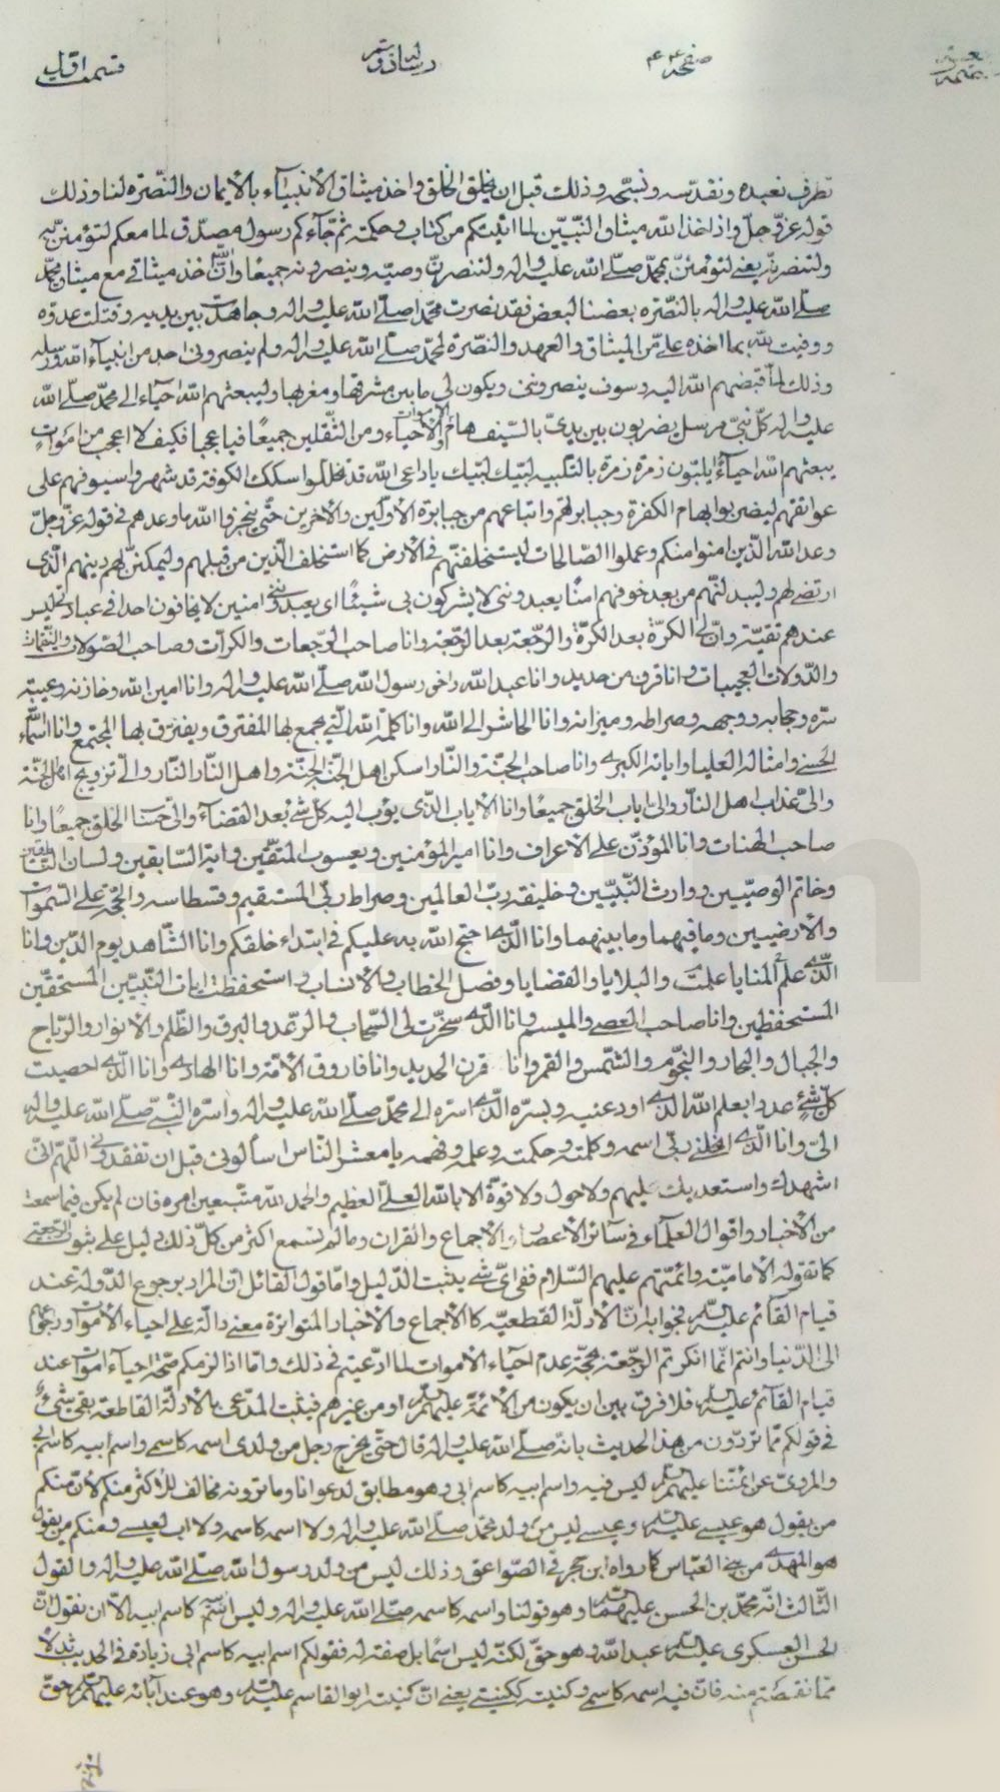 قسمت اول رسالة دوم صفحه ۴۴
تطرف نعبده ونقدّسه ونسبّحه وذلك قبل ان يخلق الخلق واخذ ميثاق الأنبيآء بالأيمان والنّصرة لنا وذلك
قوله عزّ وجلّ واذ اخذ اللّه ميثاق النّبيّين لما اتيتكم من كتاب وحكمة ثمّ جآءكم رسول مصدّق لما معكم لتؤمننّ به
ولتنصرنّه يعنى لتؤمننّ بمحمّد صلّى اللّه عليه واله ولتنصرنّ وصيّه وينصرونه جميعًا وانّ اللّه اخذ ميثاقى مع ميثاق محمّد
صلّى اللّه عليه واله بالنّصرة بعضنا لبعض فقد نصرت محمّدا صلّى اللّه عليه واله وجاهدت بين يديه وقتلت عدوّه
ووفيت للّه بما اخذه علىّ من الميثاق والعهد والنّصرة لمحمّد صلّى اللّه عليه واله ولم ينصرونى احد من انبيآء اللّه ورسله
وذلك لمّا قبضهم اللّه اليه وسوف ينصروننى ويكون لى ما بين مشرقها ومغربها وليبعثهم اللّه احيآء الى محمّد صلّى اللّه
عليه واله كلّ نبىّ مرسل يضربون بين يدىّ بالسّيف هام الاموات والأحيآء ومن الثّقلين جميعًا فيا عجبا فكيف لا اعجب من اموات
يبعثهم اللّه احيآءً يلبّون زمرة زمرة بالتّلبيه لبّيك لبّيك يا داعى اللّه قد تخلّلوا سكك الكوفة قد شهروا سيوفهم على
عواتقهم ليضربوا بها هام الكفرة وجبابرتهم واتباعهم من جبابرة الأوّلين والأخرين حتّى ينجز اللّه ما وعدهم فى قوله عزّ وجلّ
وعد اللّه الّذين امنوا منكم وعملوا الصّالحات ليستخلفنّهم فى الأرض كما استخلف الّذين من قبلهم وليمكّننّ لهم دينهم الّذى
ارتضى لهم وليبدلنّهم من بعد خوفهم امنًا يعبدوننى لا يشركون بى شيئًا اى يعبدوننى امنين لا يخافون احدا فى عبادتى ليس
عندهم تقيّة وانّ لى الكرّة بعد الكرّة والرّجعة بعد الرّجعة وانا صاحب الرّجعات والكرّات وصاحب الصّولات والنّقمات
والدّولات العجيبات وانا قرن من حديد وانا عبد اللّه واخى رسول اللّه صلّى اللّه عليه واله وانا امين اللّه وخازنه وعيبة
سرّه وحجابه ووجهه وصراطه وميزانه وانا الحاشر الى اللّه وانا كلمة اللّه الّتى يجمع بها المفترق ويفترق بها المجتمع وانا اسمآء
الحسنى وامثاله العليا واياته الكبرى وانا صاحب الجنّة والنّار اسكن اهل الجنّة الجنّة واهل النّار النّار والىّ تزويج اهل الجنّة
والىّ عذاب اهل النّار والىّ اياب الخلق جميعًا وانا الأياب الّذى يؤب اليه كلّ شئ بعد القضآء والىّ حساب الخلق جميعًا وانا
صاحب الهنات وانا المؤذّن على الأعراف وانا امير المؤمنين ويعسوب المتّقين واية السّابقين ولسان النّاطقين
وخاتم الوصيّين ووارث النّبيّين وخليفة ربّ العالمين وصراط ربّى المستقيم وقسطاسه والحجّة على السّموات
والأرضيين وما فيهما وما بينهما وانا الّذى احتجّ اللّه به عليكم فى ابتداء خلقكم وانا الشّاهد يوم الدّين وانا
الّذى علمت المنايا والبلايا والقضايا وفصل الخطاب والأنساب واستحفظت ايات النّبيّين المستحقّين
المستحفظين وانا صاحب العصى والميسم وانا الّذى سخّرت لى السّحاب والرّعد والبرق والظّلم والأنوار والرّياح
والجبال والبحار والنّجوم والشّمس والقمر وانا قرن الحديد وانا فاروق الأمّة وانا الهادى وانا الّذى احصيت
كلّ شئ عددا بعلم اللّه الّذى اودعنيه وبسرّه الّذى اسرّه الى محمّد صلّى اللّه عليه واله واسرّه النّبىّ صلّى اللّه عليه واله
الىّ وانا الّذى انحلنى ربّى اسمه وكلمته وحكمته وعلمه وفهمه يا معشر النّاس اسألونى قبل ان تفقدونى اللّهمّ انّى
اشهدك واستعديك عليهم ولا حول ولا قوّة الّا باللّه العلىّ العظيم والحمد للّه متّبعين امره فان لم يكن فيما سمعت
من الأخبار واقوال العلمآء فى سآئر الأعصار والأجماع والقران وما لم تسمع اكثر من كلّ ذلك دليل على ثبوت الرّجعة
كما تقوله الأماميّة وائمّتهم عليهم السّلام ففى اىّ شئ يثبت الدّليل وامّا قول القائل انّ المراد برجوع الدّولة عند
قيام القآئم عليه السّلام فجوابه انّ الأدلّة القطعيّة كالأجماع والأخبار المتواترة معنى دالّة على احيآء الأموات ورجوعهم
الى الدّنيا وانتم انّما انكرتم الرّجعة بحجّة عدم احيآء الأموات لما ادّعيتم فى ذلك وامّا اذا لزمكم صحّة احيآء اموات عند
قيام القآئم عليه السّلام فلا فرق بين ان يكون من الأئمّة عليهم السّلام او من غيرهم فيثبت المدّعى بالأدلّة القاطعة بقى شئ
فى قولكم ممّا تردّون من هذا الحديث بانّه صلّى اللّه عليه واله قال حتّى يخرج رجل من ولدى اسمه كاسمى واسم ابيه كاسم ابى
والمروىّ عن ائمّتنا عليهم السّلام ليس فيه واسم ابيه كاسم ابى وهو مطابق لدعوانا وما تروونه مخالف للأكثر منكم لأنّ منكم
من يقول هو عيسى عليه السّلام وعيسى ليس من ولد محمّد صلّى اللّه عليه واله ولا اسمه كاسمه ولا اب لعيسى ومنكم من يقول
هو المهدى من بنى العبّاس كما رواه ابن حجر فى الصّواعق وذلك ليس من ولد رسول اللّه صلّى اللّه عليه واله والقول
الثّالث انّه محمّد بن الحسن عليهما السّلام وهو قولنا واسمه كاسمه صلّى اللّه عليه واله وليس اسم ابيه كاسم ابيه الّا ان نقول انّ
الحسن العسكرى عليه السّلام عبد اللّه وهو حقّ لكنّه ليس اسمًا بل صفة له فقولكم اسم ابيه كاسم ابى زيادة فى الحديث بدلا
ممّا نقصتم منه فانّ فيه اسمه كاسمى وكنيته ككنيتى يعنى انّ كنيته ابو القاسم عليه السّلام وهو عند آبائه عليهم السّلام حقّ